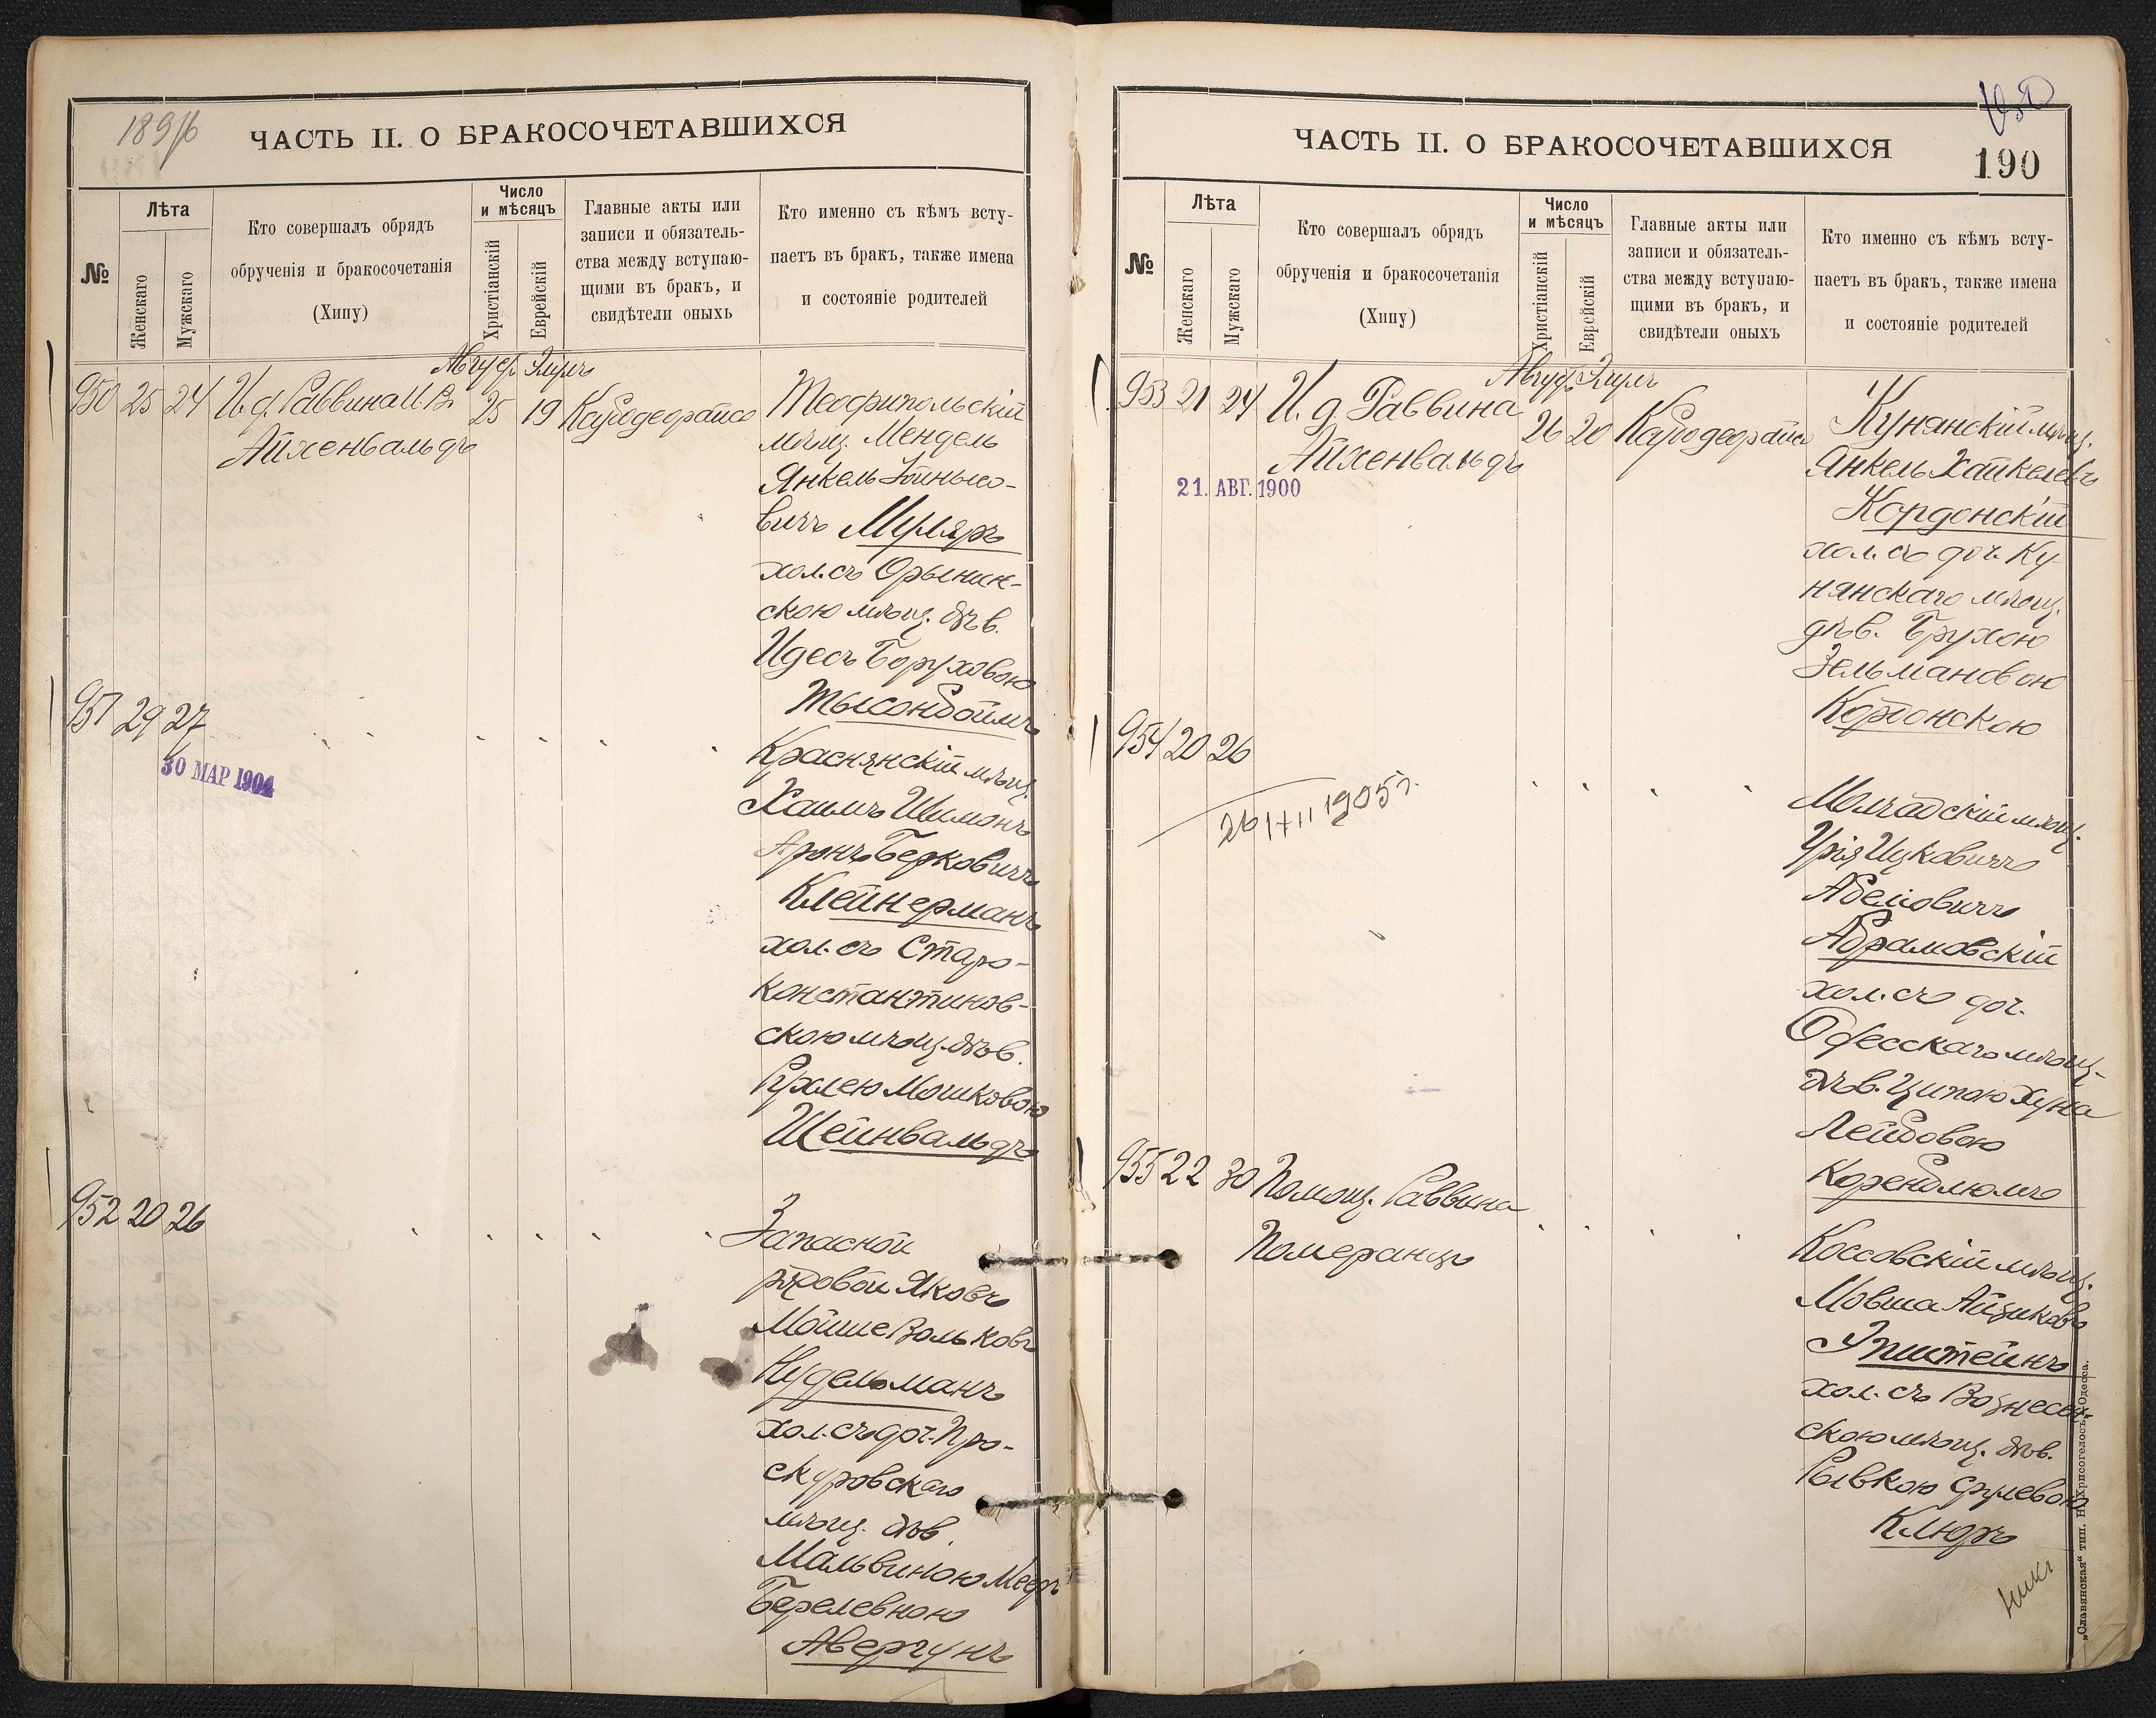 1896
ЧАСТЬ II. О БРАКОСОЧЕТАВШИХСЯ
№
Лѣта
Женскаго
Мужскаго
Кто совершалъ обрядъ
обрученія и бракосочетанія
(Хипу)
Число
и мѣсяцъ
Христіанскій
Еврейскій
Главные акты или
записи и обязатель-
ства между вступаю-
щими въ бракъ, и
свидѣтели оныхъ
Кто именно съ кѣмъ всту-
паетъ въ бракъ, также имена
и состояніе родителей
Август. Элулъ
950 25 24 И. д. Раввина И. В. 25 19 Теофипольскій
Айхенвальдъ
мѣщ. Мендель
Янкель
вичъ Муляръ
хол. съ Орынин-
скою мѣщ. дѣв.
Идесъ Боруховою
Тысонбоймъ
951 29 27
30 МАР 1904
Краснянскій мѣщ.
Хаимъ Шимонъ
Аронъ Берковичъ
Клейнерманъ
хол. съ Старо-
константинов-
скою мѣщ. дѣв.
Рухлею Мошковою
Шейнвальдъ
952 20 26
Запасной
рядовой Яковъ
Мойше Вольковъ
Нудельманъ
хол. съ доч. Про-
скуровскаго
мѣщ. дѣв.
Мальвиною Мееръ
Берелевною
Авергунъ
190
ЧАСТЬ II. О БРАКОСОЧЕТАВШИХСЯ
№
Лѣта
Женскаго
Мужскаго
Кто совершалъ обрядъ
обрученія и бракосочетанія
(Хипу)
Число
и мѣсяцъ
Христіанскій
Еврейскій
Главные акты или
записи и обязатель-
ства между вступаю-
щими въ бракъ, и
свидѣтели оныхъ
Кто именно съ кѣмъ всту-
паетъ въ бракъ, также имена
и состояніе родителей
Август. Элулъ
953 21 24 И. д. Раввина 26 20 Кунянскій мѣщ.
Айхенвальдъ
21. АВГ. 1900
Янкель Хайкелевъ
Кордонскій
хол. съ доч. Ку-
нянскаго мѣщ.
дѣв. Брухою
Зельмановою
Кордонскою
954 20 26
1905 г.
Молчадскій мѣщ.
Урія Ицковичъ
Абелiовичъ
Абрамовскій
хол. съ доч.
Одесскаго мѣщ.
дѣв. Ципою Хуна
Лейбовою
Коренблюмъ
955 22 30 Помощ. Раввина
Померанцъ
Коссовскій мѣщ.
Мовша Айзиковъ
Эпштейнъ
хол. съ Вознесен-
скою мѣщ. дѣв.
Рывкою Срулевою
Клюръ
„Славянская“ тип. Н. Хрисогелосъ, Одесса.